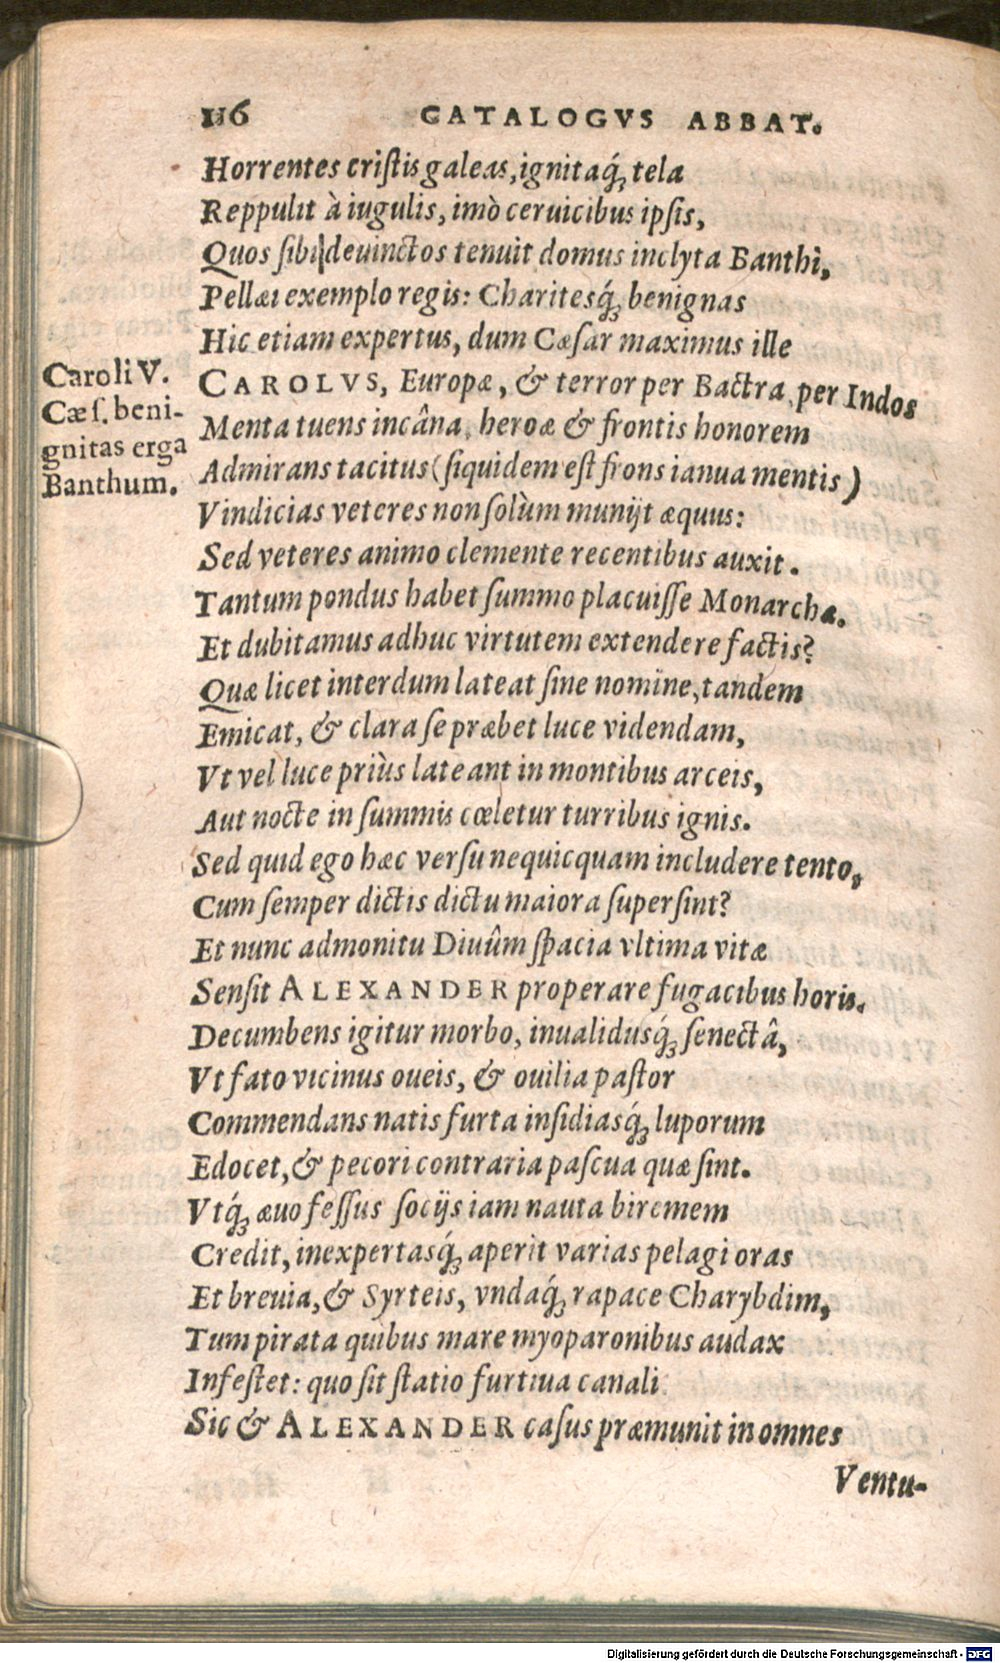 116 CATALOGVS ABBAT.
Horrentes criſtis galeas, ignitaq́; tela
Reppulit à iugulis, imò ceruicibus ipſis,
Quos ſibi deuinctos tenuit domus inclyta Banthi,
Pellæi exemplo regis: Charitesq́; benignas
Hic etiam expertus, dum Cæſar maximus ille
CAROLVS, Europæ, & terror per Bactra, per Indos
Menta tuens incâna, heroæ & frontis honorem
Admirans tacitus (ſiquidem eſt frons ianua mentis)
Vindicias veteres non ſolùm munijt æquus:
Sed veteres animo clemente recentibus auxit.
Tantum pondus habet ſummo placuiſſe Monarchæ.
Et dubitamus adhuc virtutem extendere factis?
Quæ licet interdum lateat ſine nomine, tandem
Emicat, & clara ſe præbet luce videndam,
Vt vel luce priùs lateant in montibus arceis,
Aut nocte in ſummis cœletur turribus ignis.
Sed quid ego hæc verſu nequicquam includere tento,
Cum ſemper dictis dictu maiora ſuperſint?
Et nunc admonitu Diuûm ſpacia vltima vitæ
Senſit ALEXANDER properare fugacibus horis.
Decumbens igitur morbo, inualidusq́; ſenectâ,
Vt fato vicinus oueis, & ouilia paſtor
Commendans natis furta inſidiasq́; luporum
Edocet, & pecori contraria paſcua quæ ſint.
Vtq́; æuo feſſus ſocijs iam nauta biremem
Credit, inexpertasq́; aperit varias pelagi oras
Et breuia, & Syrteis, vndaq́; rapace Charybdim,
Tum pirata quibus mare myoparonibus audax
Infeſtet: quo ſit ſtatio furtiua canali
Sic & ALEXANDER caſus præmunit in omnes
Ventu-
Caroli V.
Cæſ. beni-
gnitas erga
Banthum.
Digitalisierung gefördert durch die Deutsche Forschungsgemeinschaft - DFG